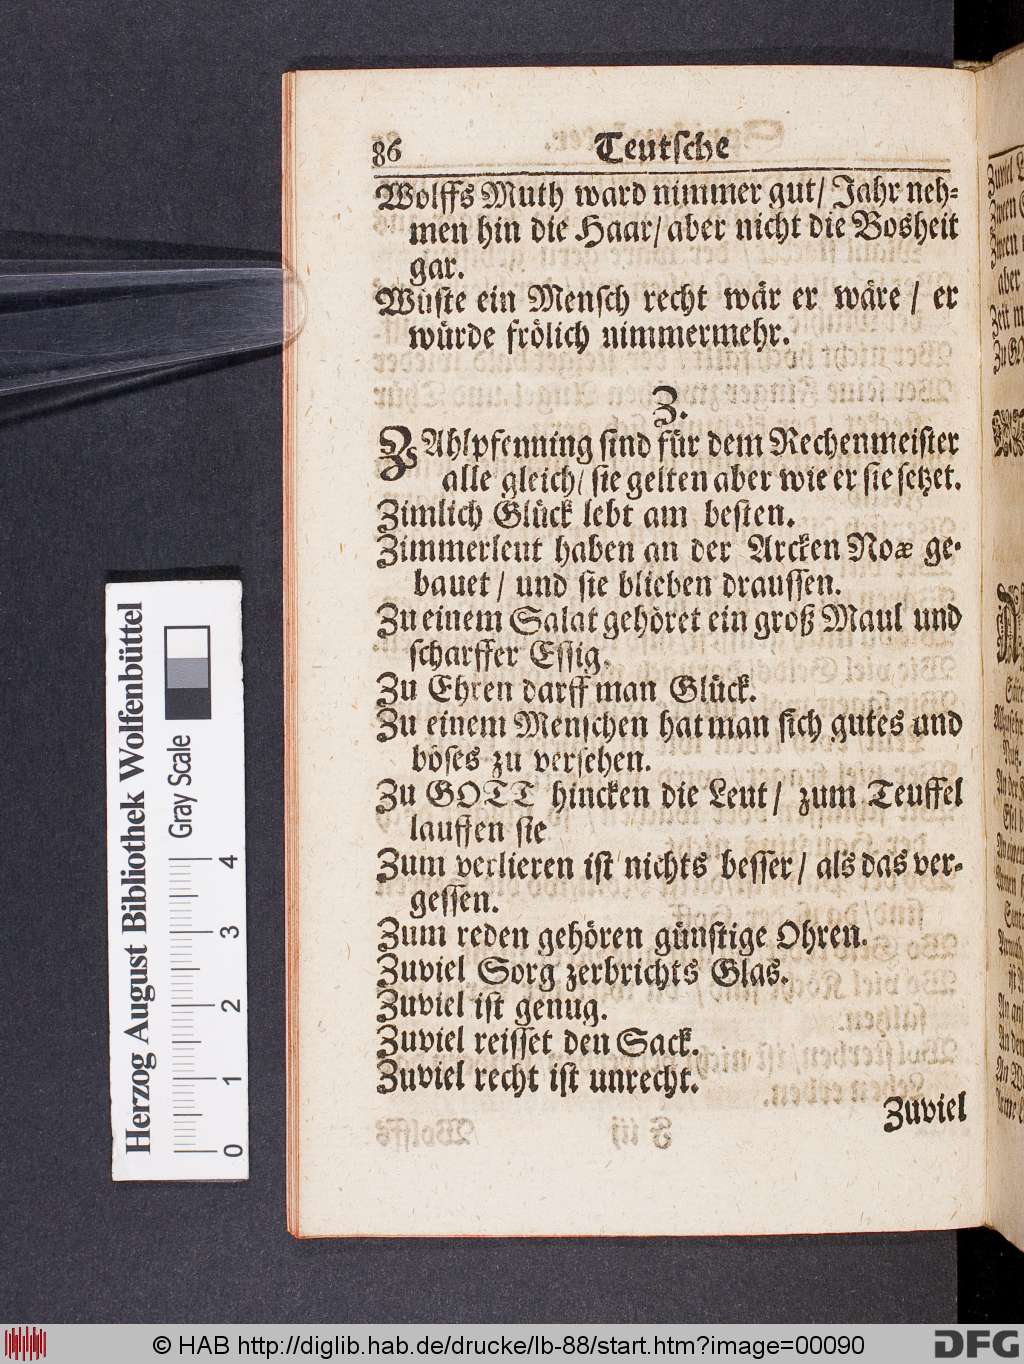 86 Teutsche
Wolffs Muth ward nimmer gut/ Jahr neh-
men hin die Haar/ aber nicht die Bosheit
gar.
Wüste ein Mensch recht wär er wäre / er
würde frölich nimmermehr.
Z.
ZAhlpfenning sind für dem Rechenmeister
alle gleich/ sie gelten aber wie er sie setzet.
Zimlich Glück lebt am besten.
Zimmerleut haben an der Arcken Noæ ge-
bauet / und sie blieben draussen.
Zu einem Salat gehöret ein groß Maul und
scharffer Essig.
Zu Ehren darff man Glück.
Zu einem Menschen hat man sich gutes und
böses zu versehen.
Zu GOTT hincken die Leut / zum Teuffel
lauffen sie
Zum verlieren ist nichts besser / als das ver-
gessen.
Zum reden gehören günstige Ohren.
Zuviel Sorg zerbrichts Glas.
Zuviel ist genug.
Zuviel reisset den Sack.
Zuviel recht ist unrecht.
Zuviel
Herzog August Bibliothek Wolfenbüttel
Gray Scale
0 1 2 3 4
© HAB http://diglib.hab.de/drucke/lb-88/start.htm?image=00090
DFG